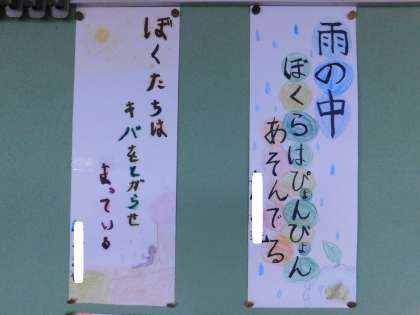 雨の中
ぼくらはぴょんぴょん
あそんでる
ぼくたちは
キバをとがらせ
まっている